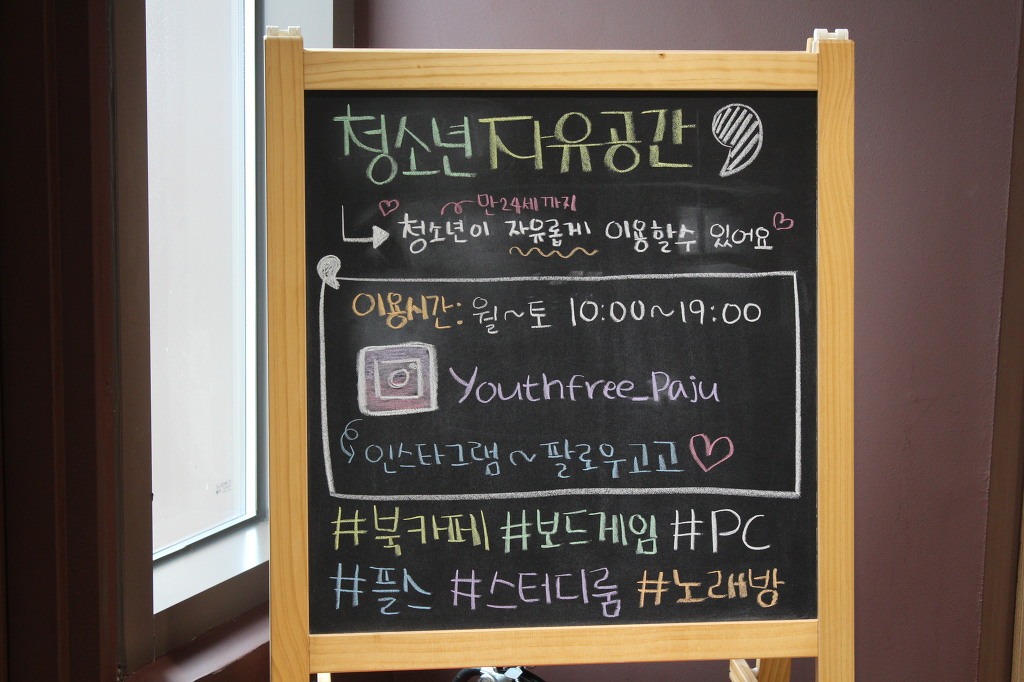 청소년자유공간
만24세까지
청소년이 자유롭게 이용할수 있어요
이용시간: 월~토 10:00~19:00
Youthfree_Paju
인스타그램~팔로우고고
#북카페 #보드게임 #PC
#플스 #스터디룸 #노래방